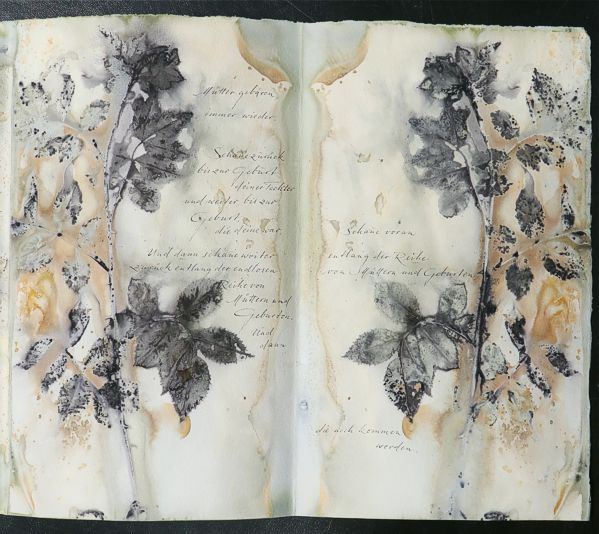 Mütter gebären
immer wieder.
Schaue zurück
bis zur Geburt
deiner Tochter
und weiter bis zur
Geburt,
die deine war.
Und dann schaue weiter
zurück entlang der endlosen
Reihe von
Müttern und
Geburten.
Und
dann
Schaue voran
entlang der Reihe
von Müttern und Geburten,
die noch kommen
werden.